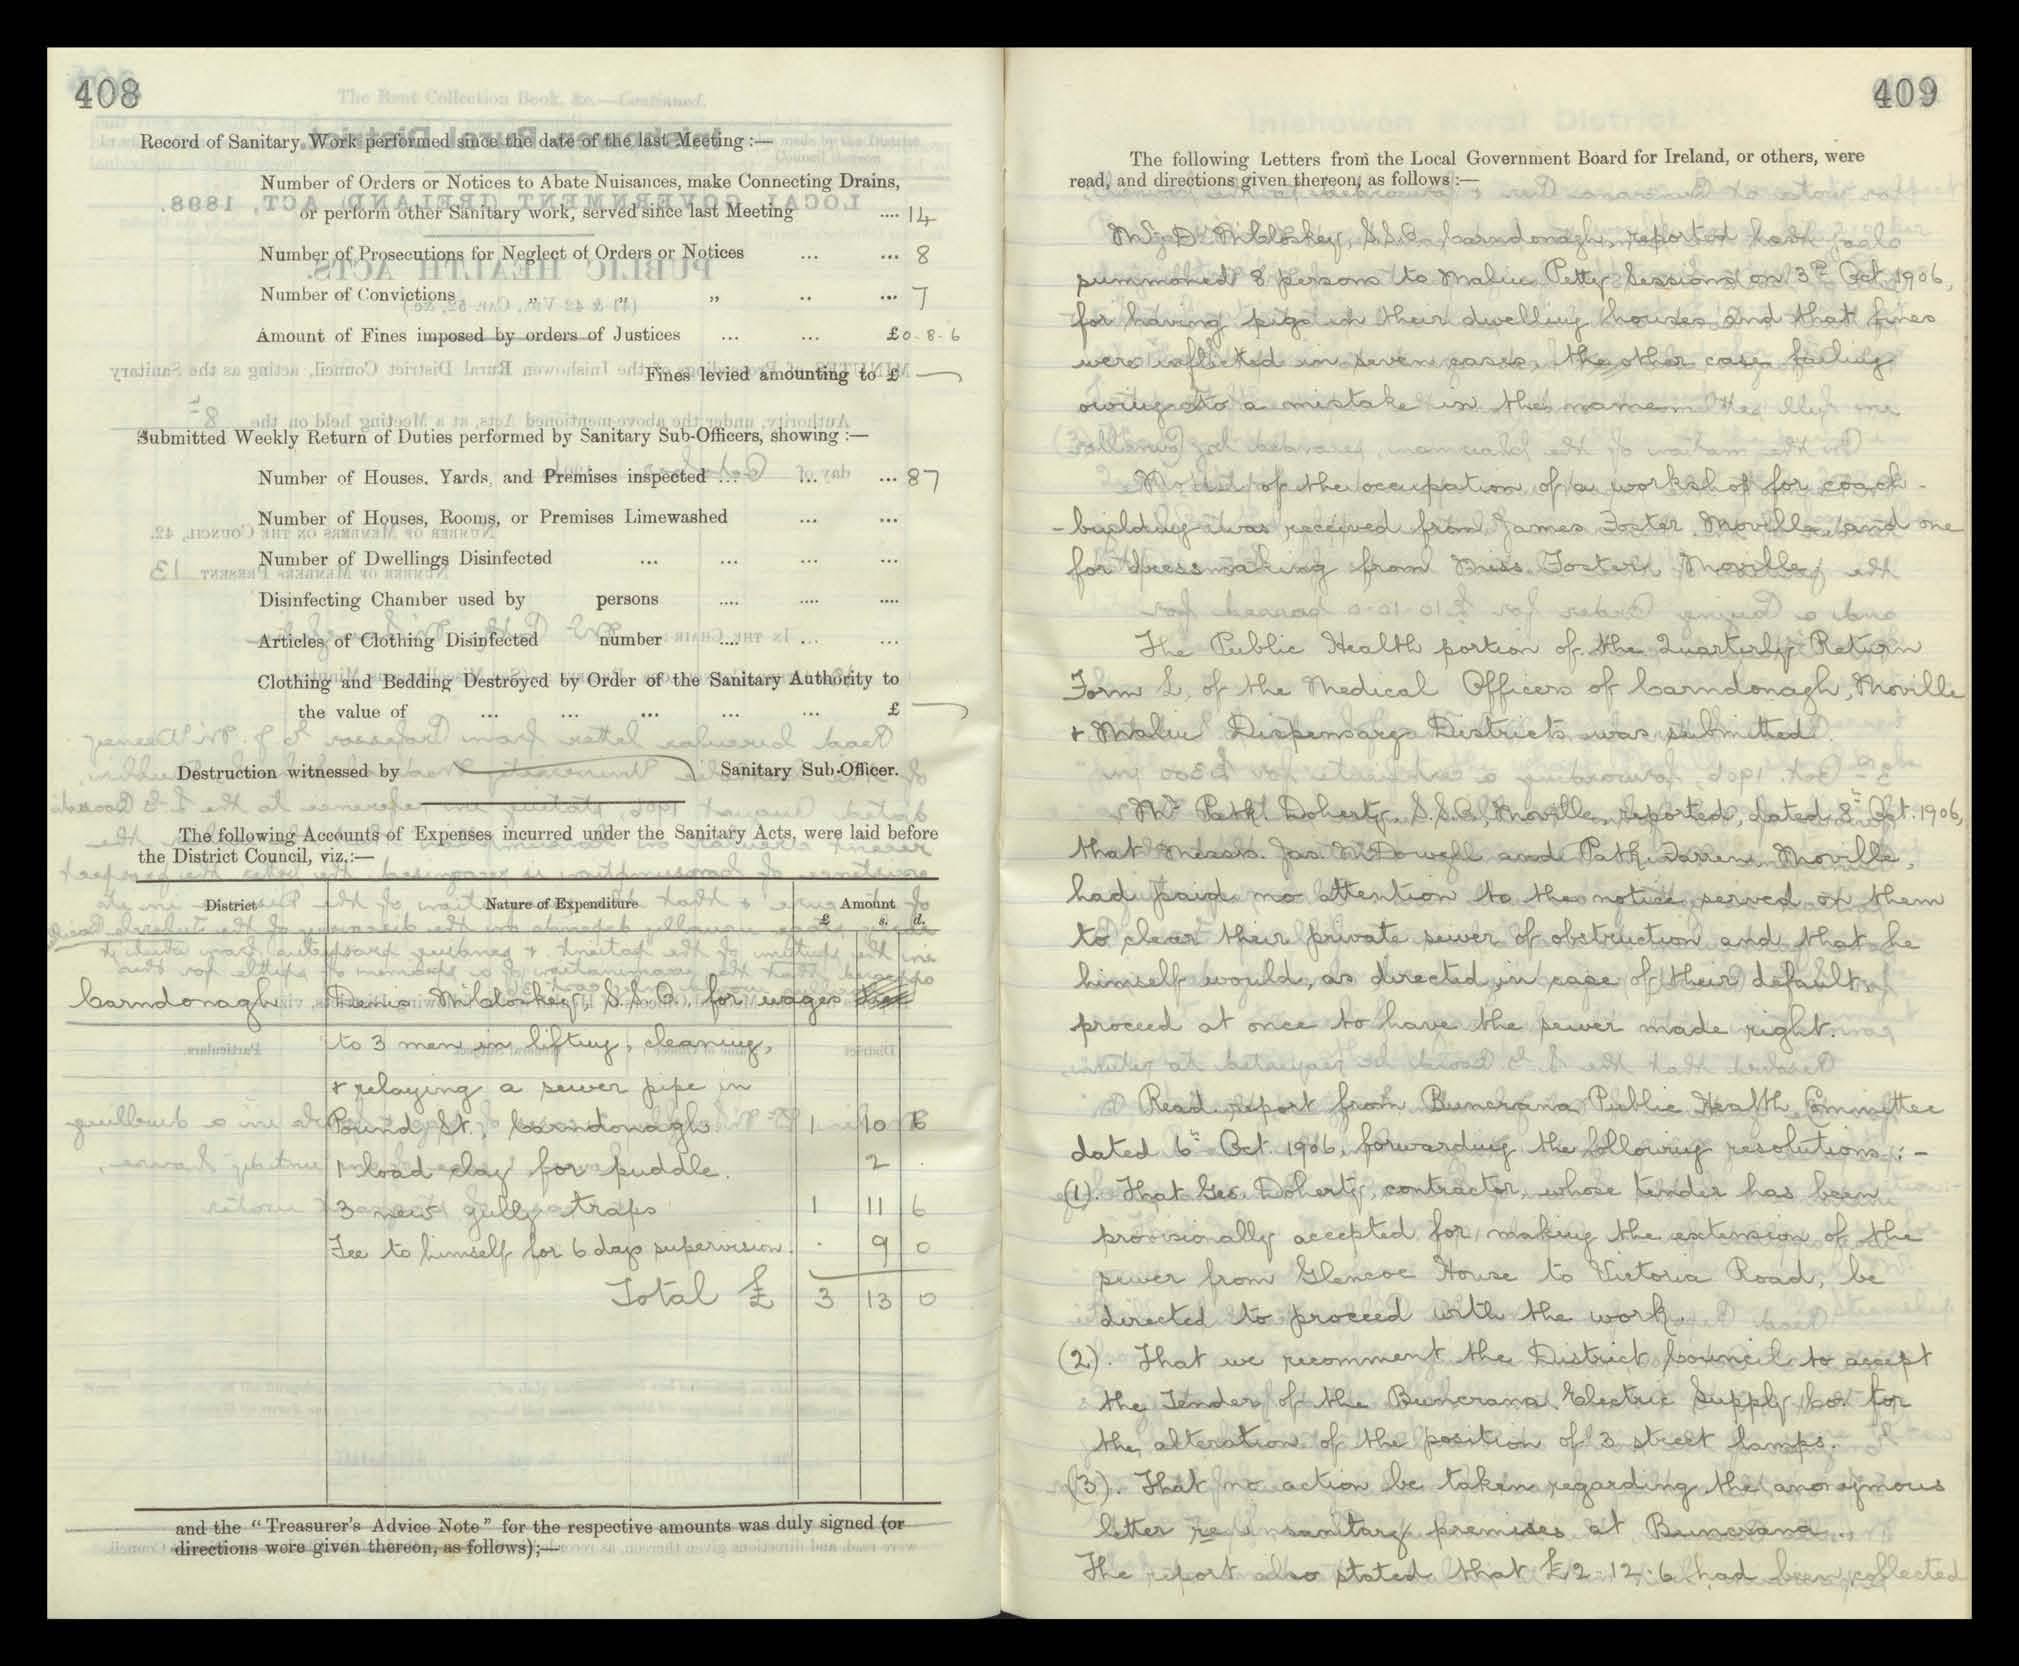 408
Record of Sanitary Work performed since the date of the last Meeting :—
Number of Orders or Notices to Abate Nuisances, make Connecting Drains,
or perform other Sanitary work, served since last Meeting .... 14
Number of Prosecutions for Neglect of Orders or Notices ... ... 8
Number of Convictions „ „ „ .. ... 7
Amount of Fines imposed by orders of Justices ... ... £0-8-6
Fines levied amounting to £ —
Submitted Weekly Return of Duties performed by Sanitary Sub-Officers, showing :—
Number of Houses, Yards, and Premises inspected ... ... ... 87
Number of Houses, Rooms, or Premises Limewashed ... ...
Number of Dwellings Disinfected ... ... ... ...
Disinfecting Chamber used by persons .... .... ....
Articles of Clothing Disinfected number .... ... ...
Clothing and Bedding Destroyed by Order of the Sanitary Authority to
the value of ... ... ... ... ... £ —
Destruction witnessed by — Sanitary Sub-Officer.
The following Accounts of Expenses incurred under the Sanitary Acts, were laid before
the District Council, viz.:—
District Nature of Expenditure Amount
£ s. d.
Carndonagh Denis McCloskey, S.S.O., for wages
to 3 men in lifting, cleaning,
& relaying a sewer pipe in
Pound St., Carndonagh 1 10 6
1 load clay for puddle. 2 .
3 new gully traps 1 11 6
Fee to himself for 6 days supervision. . 9 0
Total £ 3 13 0
and the "Treasurer's Advice Note" for the respective amounts was duly signed (or
directions were given thereon, as follows);—
409
The following Letters from the Local Government Board for Ireland, or others, were
read, and directions given thereon, as follows :—
Mr D. McCloskey, S.S.O., Carndonagh, reported had
summoned 8 persons to Malin Petty Sessions on 3rd Oct. 1906,
for having pigs in their dwelling houses and that fines
were inflicted in seven cases, the other case failing
owing to a mistake in the name.
Notice of the occupation of a workshop for coach-
-building was received from James Foster, Moville, and one
for dressmaking from Miss Foster, Moville.
The Public Health portion of the Quarterly Return
Form L, of the Medical Officers of Carndonagh, Moville
& Malin Dispensary Districts was submitted.
Mr Patk. Doherty, S.S.O., Moville, reported, dated 8th Oct. 1906,
that Messrs. Jas. McDowell and Patk. Farren, Moville,
had paid no attention to the notice served on them
to clear their private sewer of obstruction and that he
himself would, as directed, in case of their default,
proceed at once to have the sewer made right.
Read report from Buncrana Public Health Committee
dated 6th Oct. 1906, forwarding the following resolutions :-
(1). That Geo. Doherty, contractor, whose tender has been
provisionally accepted for making the extension of the
sewer from Glencoe House to Victoria Road, be
directed to proceed with the work.
(2). That we recomment the District Council to accept
the Tender of the Buncrana Electric Supply Co. for
the alteration of the position of 3 street lamps.
(3). That no action be taken regarding the anonymous
letter re insanitary premises at Buncrana.
The report also stated that £2-12-6 had been collected